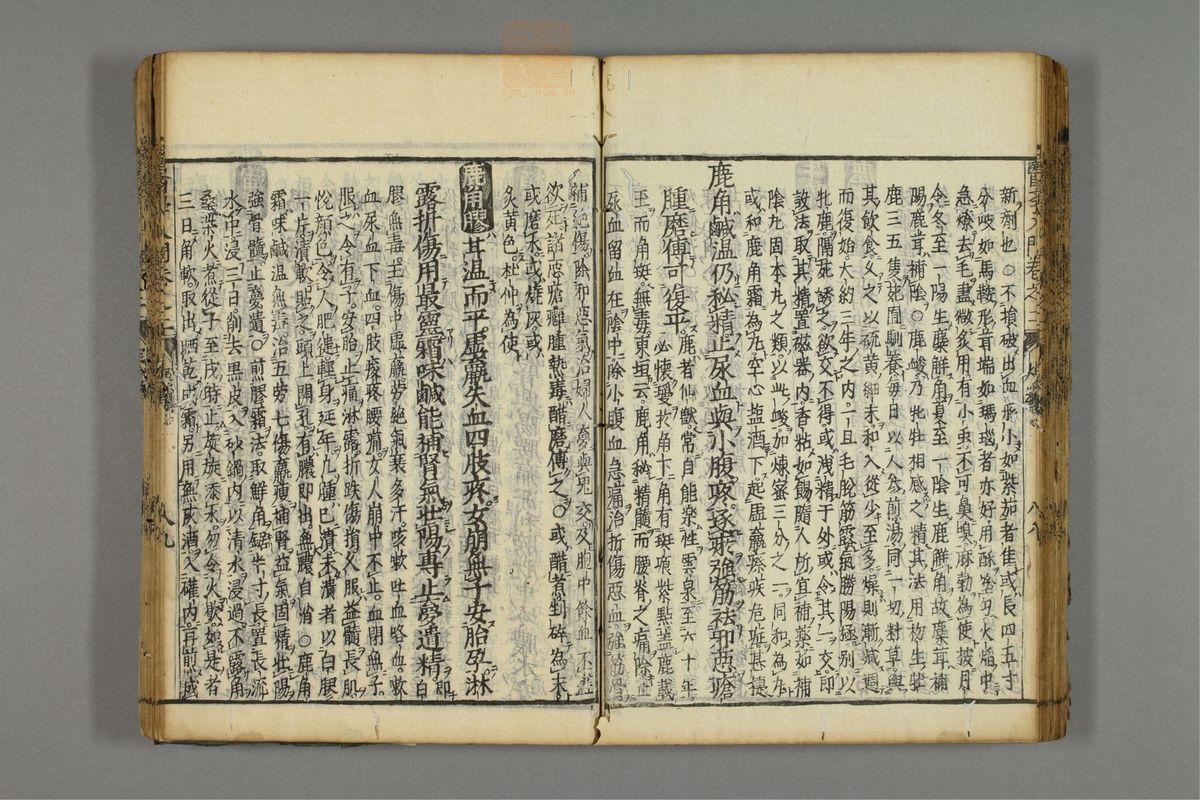 新剤也○不搶破出血形小如紫茄者佳或長四五寸
分岐如馬鞍形茸端如瑪瑙者亦好用酥塗勻火焰中
急燎去毛盡微炙用有小虫不可鼻嗅麻勃為使按月
令冬至一陽生麋解角夏至一陰生鹿解角故麋茸補
陽鹿茸補陰○鹿峻乃牝牡相感之精其法用初生牡
鹿三五隻苑囿馴養每日以人參煎湯同一切料草與
其飲食久之以硫黃細末和入從少至多燥則漸減週
而復始大約三年之內一旦毛脫筋露氣勝陽極別以
牝鹿隔苑誘之欲交不得或洩精于外或令其一交即
設法取其精置磁器內香粘如餳隨人所宜補藥如補
陰丸固本丸之類以此峻加煉蜜三分之一同和為丸
或和鹿角霜為丸空心塩酒下起虛羸瘵疾危症甚捷
鹿角鹹溫仍秘精止尿血與小腹疼逐瘀強筋祛卯惡瘡
腫磨傅可復平鹿者仙獸常自能樂性雲泉至六十年
必懷瓊於角下角有斑痕紫點盖鹿戴
玉而角斑無毒東垣云鹿角秘精髓而腰脊之痛除止
尿血留血在陰中除小腹血急痛治折傷惡血強筋骨
補絶傷除邪惡氣治婦人夢與鬼交及胞中餘血不盡
欲死諸惡瘡癰腫熱毒醋磨傅之○或醋煮剉碎為末
或磨水或燒灰或
炙黃色杜仲為使
鹿角膠甘溫而平虛羸失血四肢疼女崩無子安胎孕淋
露折傷用最靈霜味鹹能補腎氣壯陽專止夢遺精即白
膠無毒主傷中虛羸勞絶氣衰多汗咳嗽吐血咯血嗽
血尿血下血四肢痠疼腰痛女人崩中不止血閉無子
服之令有子安胎止痛淋露折跌傷損久服益髓長肌
悅顏色令人肥健輕身延年凡腫已潰未潰者以白膠
一片漬軟貼之頭上開孔有膿即出無膿自消○鹿角
霜味鹹溫無毒治五勞七傷羸瘦補腎益氣固精壯陽
強骨髓止夢遺○煎膠霜法取鮮角鋸半寸長置長流
水中浸三日削去黑皮入砂鍋內以清水浸過不露角
桑柴火煮從子至戌時止旋旋添水勿令火歇如是者
三日角軟取出晒乾成霜另用無灰酒入罐內再煎成